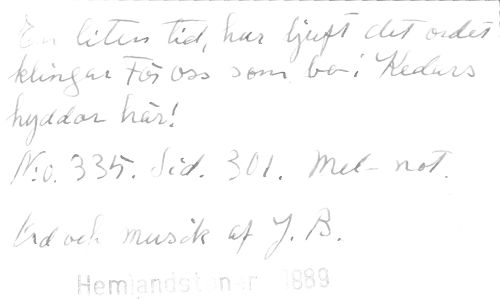 En liten tid, hur ljuft det ordet
klingar För oss som bo i Kedars
hyddor här!
N:o. 335. Sid. 301. Mel- not.
Ord och musik af J. B.
Hemlandstoner 1889